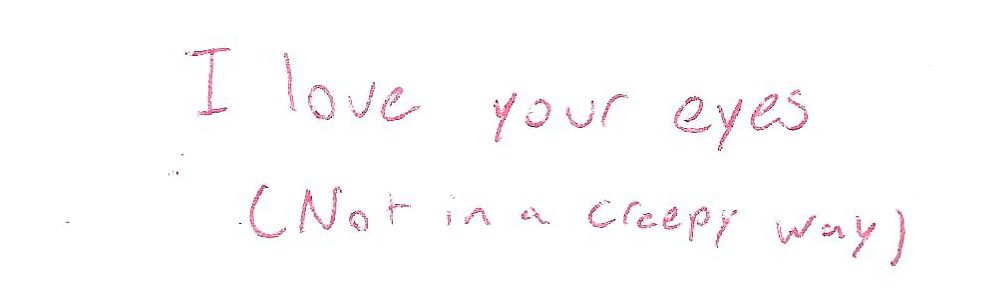 I love your eyes
(Not in a creepy way)